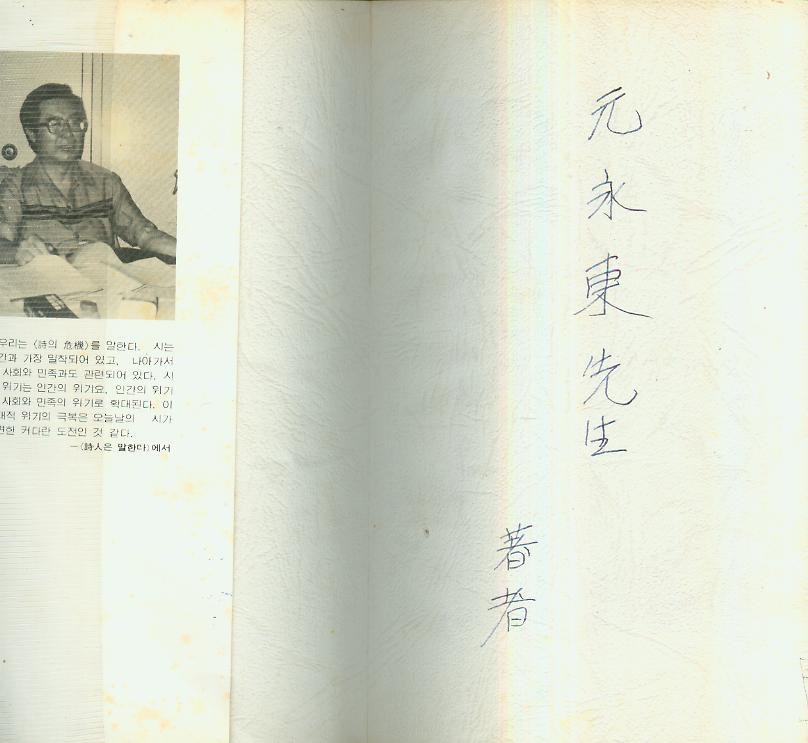 우리는 〈詩의 危機〉를 말한다. 시는
간과 가장 밀착되어 있고, 나아가서
사회와 민족과도 관련되어 있다. 시
위기는 인간의 위기요, 인간의 위기
사회와 민족의 위기로 확대된다. 이
위기의 극복은 오늘날의 시가
면한 커다란 도전인 것 같다.
—〈詩人은 말한다〉에서
元永東先生
著者